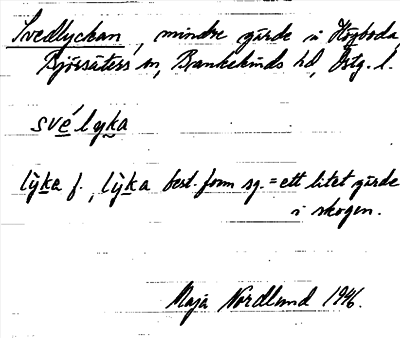 Svedlyckan, mindre gärde i Högboda,
Björsäters sn, Bankekinds hd, Östg. l.
své lyka
lỳka f., lỳka best. form sg. = ett litet gärde
i skogen.
Maja Nordlund 1946.